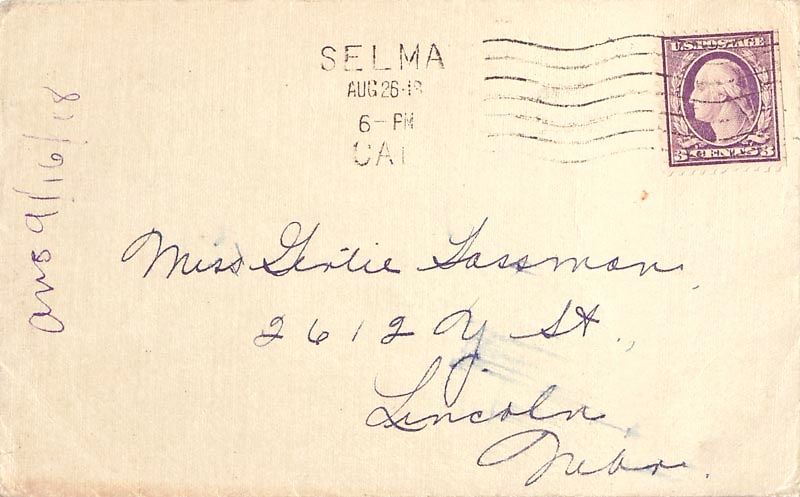 SELMA
AUG 26-18
6-PM
CAL
U.S. POSTAGE
3 CENTS 3
ans 9/16/18
Miss Gertie Gassman,
2612 Y St.,
Lincoln,
Nebr.